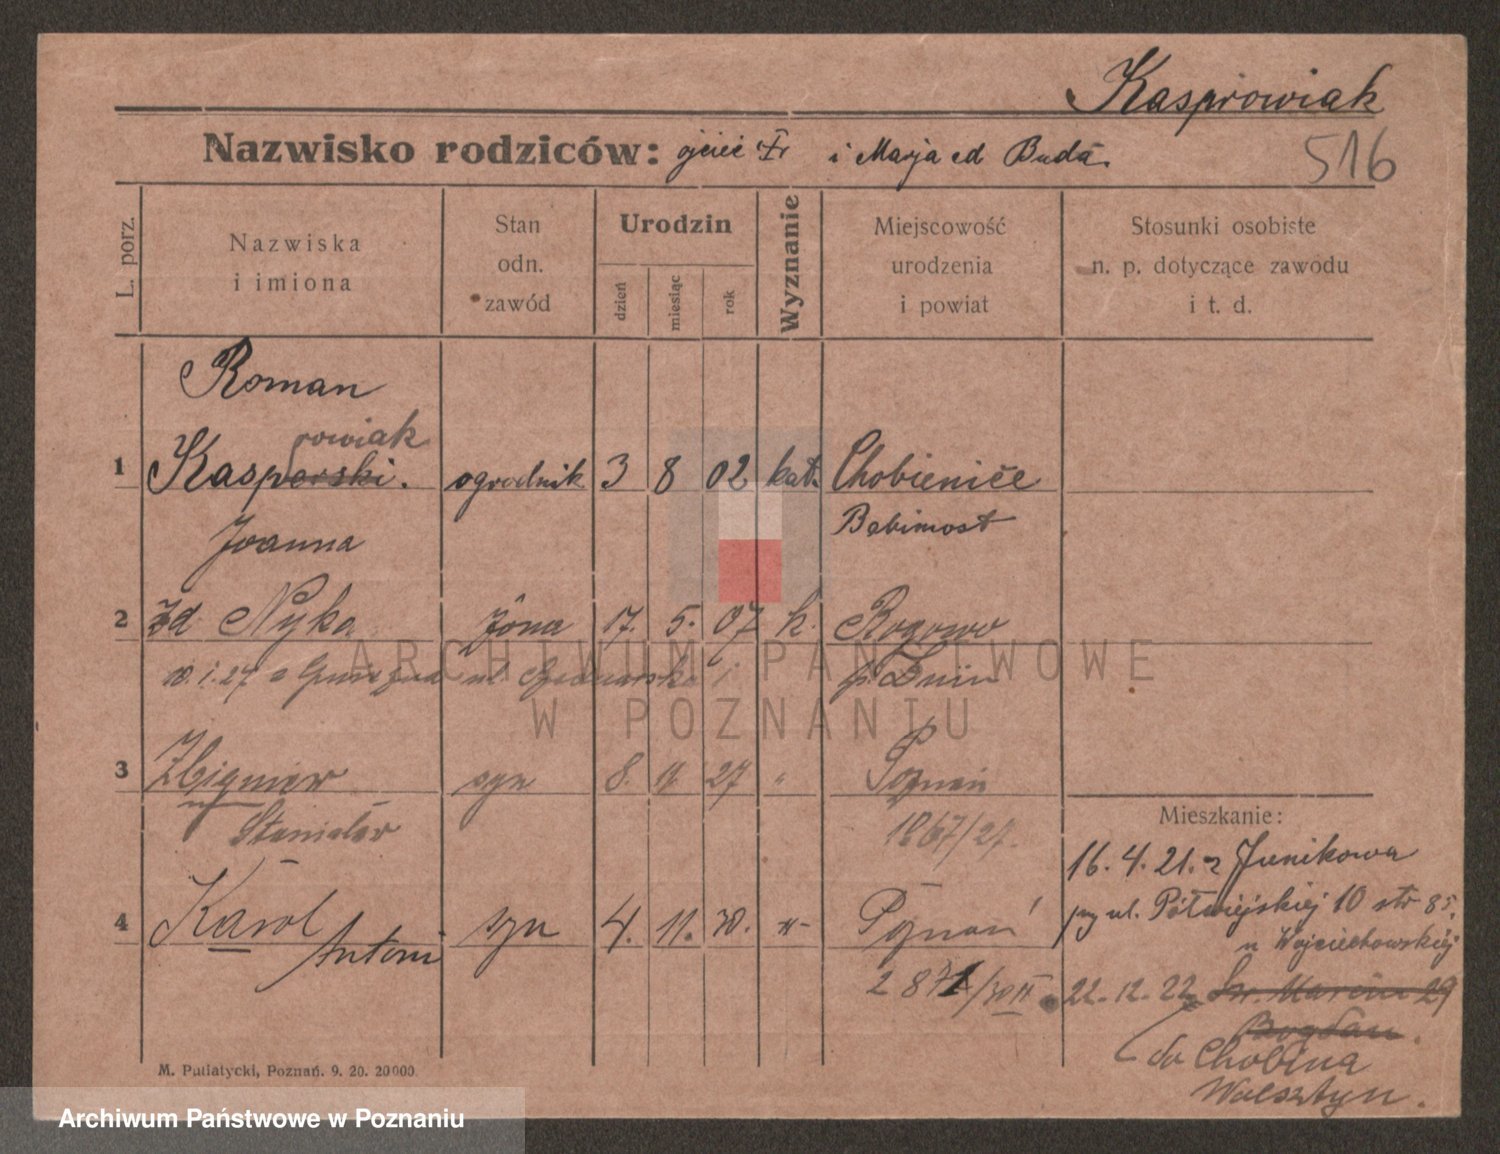 Kasprowiak
Nazwisko rodziców: ojciec Fr i Marja od Buda.
516
L. porz.
Nazwiska
i imiona
Stan
odn.
zawód
Urodzin
dzień
miesiąc
rok
Wyznanie
Miejscowość
urodzenia
i powiat
Stosunki osobiste
n. p. dotyczące zawodu
i t. d.
Roman
rowiak
1 Kasperski. ogrodnik 3 8 02 kat. Chobienice
Babimost
Joanna
2 zd Nyka żona 17. 5. 07 k. Rogowo
p. Żnin
10.1.27 z Gniezna ul
3 Zbigniew syn 8. 11 27 " Poznań
Stanisław 1867/27.
4 Karol Antoni syn 4. 11. 30. -"- Poznań
2871/30 II
Mieszkanie:
16. 4. 21. z Junikowa
przy ul. Półwiejskiej 10 str 85.
u Wojciechowskiej
22. 12. 22 Św. Marcin 29
Bogdan.
do Chobina
Wolsztyn.
M. Putiatycki, Poznań. 9. 20. 20000.
ARCHIWUM PAŃSTWOWE
W POZNANIU
Archiwum Państwowe w Poznaniu